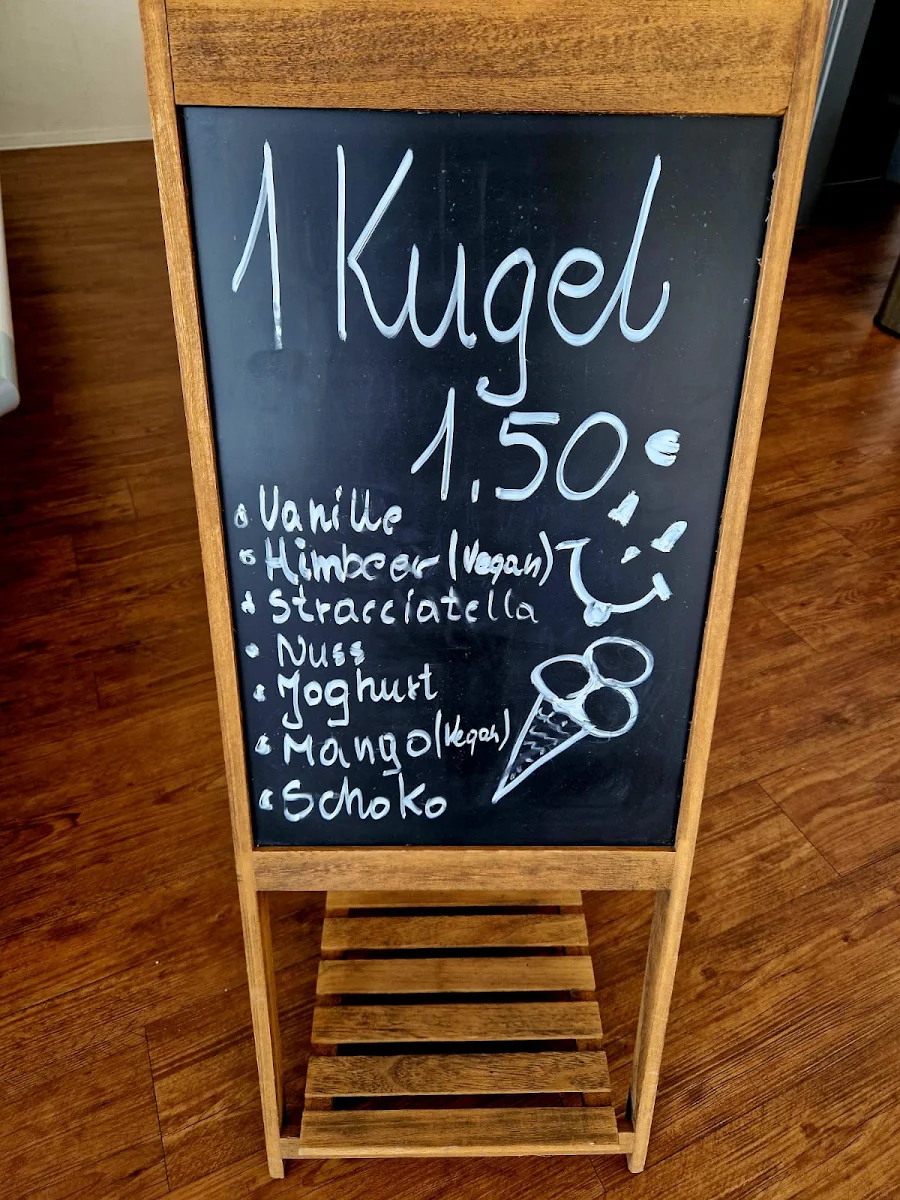 1 Kugel
1,50
• Vanille
• Himbeer (Vegan)
• Stracciatella
• Nuss
• Joghurt
• Mango (Vegan)
• Schoko